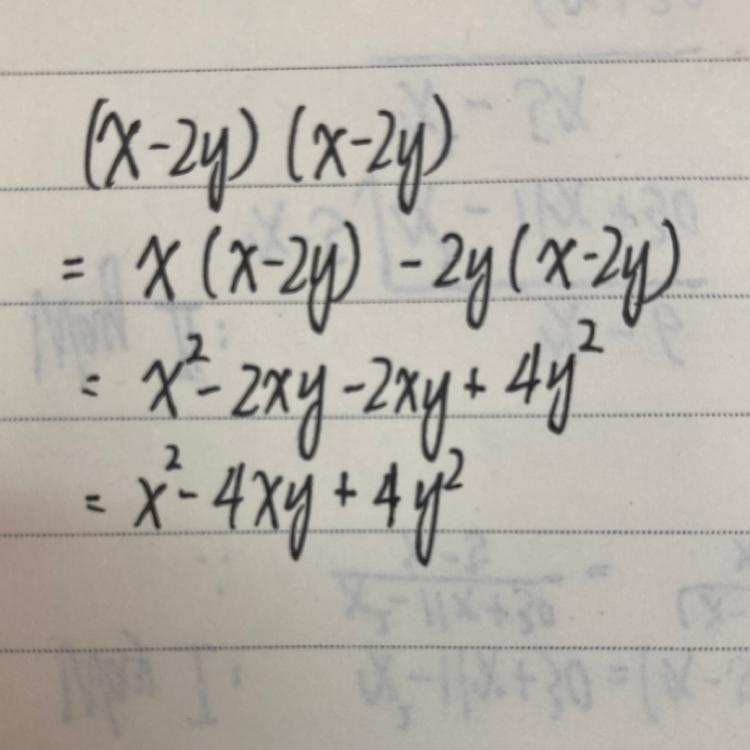 (x-2y) (x-2y)
= x (x-2y) - 2y (x-2y)
= x² - 2xy - 2xy + 4y²
= x² - 4xy + 4y²